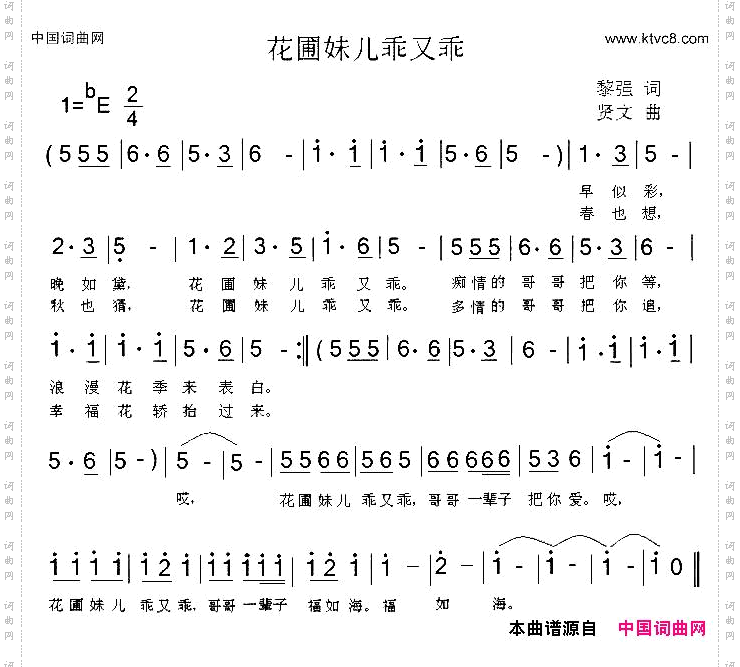 中国词曲网
花圃妹儿乖又乖
www.ktvc8.com
1=bE 2/4
黎强 词
贤文 曲
(5 555 | 6·6 | 5·3 | 6 - | i·i | i·i | 5·6 | 5 - ) | 1·3 | 5 - |
早 似 彩,
春 也 想,
2·3 | 5 - | 1·2 | 3·5 | i·6 | 5 - | 5 555 | 6·6 | 5·3 | 6 - |
晚 如 黛, 花 圃 妹 儿 乖 又 乖。 痴情的 哥 哥 把 你 等,
秋 也 猜, 花 圃 妹 儿 乖 又 乖。 多情的 哥 哥 把 你 追,
i·i | i·i | 5·6 | 5 - :|| (5 555 | 6·6 | 5·3 | 6 - | i·i | i·i |
浪 漫 花 季 来 表 白。
幸 福 花 轿 抬 过 来。
5·6 | 5 - ) | 5 - | 5 - | 5566 | 565 | 666666 | 536 | i - | i - |
哎, 花圃妹儿 乖又乖, 哥哥一辈子 把你爱。哎,
i i i i | i 2 i | i i i i i i | i 2 i | i - | 2 - | i - | i - | i - | i 0 ||
花圃妹儿 乖又乖, 哥哥一辈子 福如海。福 如 海。
本曲谱源自 中国词曲网